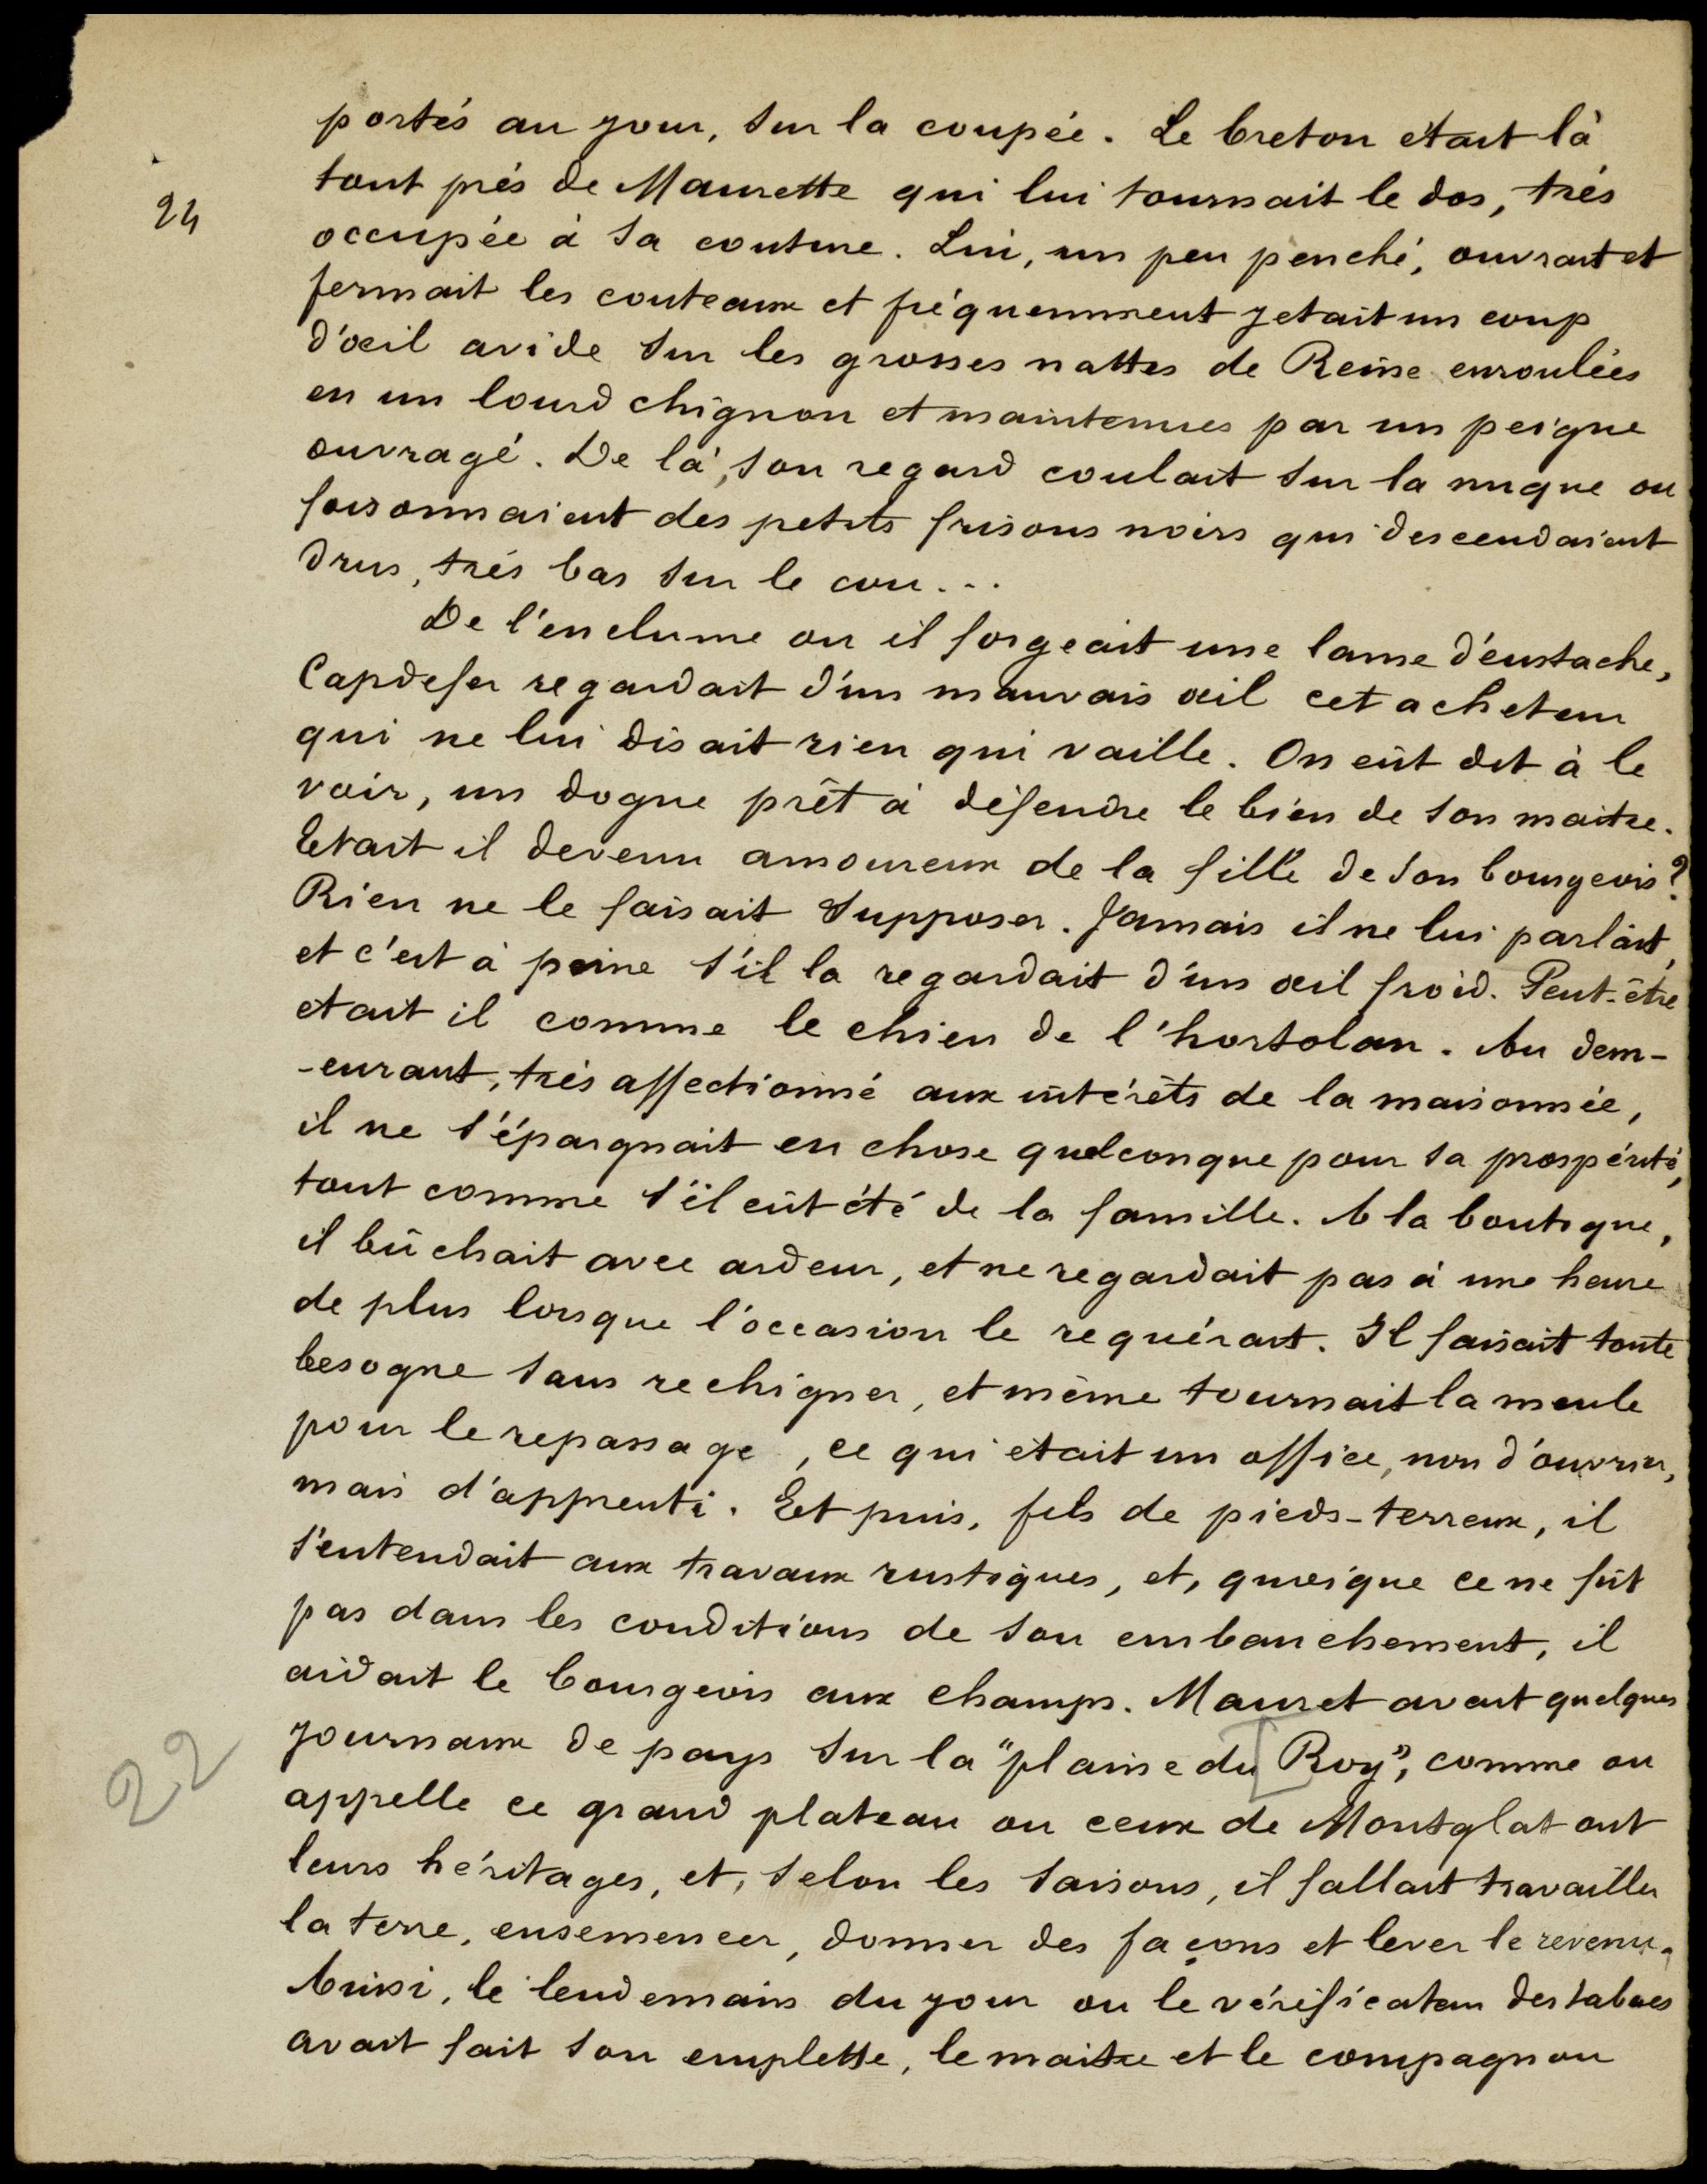 portés au jour, sur la coupée. Le breton était là
24
tout près de Maurette qui lui tournait le dos, très
occupée à sa couture. Lui, un peu penché, ouvrait et
fermait les couteaux et fréquemment jetait un coup
d'œil avide sur les grosses nattes de Reine enroulées
en un lourd chignon et maintenues par un peigne
ouvragé. De là, son regard coulait sur la nuque ou
foisonnaient des petits frisons noirs qui descendaient
drus, très bas sur le cou...
De l'enclume ou il forgeait une lame d'eustache,
Capdefer regardait d'un mauvais œil cet acheteur
qui ne lui disait rien qui vaille. On eût dit à le
voir, un dogue prêt à défendre le bien de son maître.
Etait il devenu amoureux de la fille de son bourgeois?
Rien ne le faisait supposer. Jamais il ne lui parlait,
et c'est à peine s'il la regardait d'un œil froid. Peut-être
etait il comme le chien de l'hortolan. Au dem-
-eurant, très affectionné aux intérêts de la maisonnée,
il ne s'épargnait en chose quelconque pour sa prospérité,
tout comme s'il eût été de la famille. A la boutique,
il bûchait avec ardeur, et ne regardait pas à une heure
de plus lorsque l'occasion le requérait. Il faisait toute
besogne sans rechigner, et même tournait la meule
pour le repassage, ce qui était un office, non d'ouvrier,
mais d'apprenti. Et puis, fils de pieds-terreux, il
s'entendait aux travaux rustiques, et, quoique ce ne fût
pas dans les conditions de son embauchement, il
aidait le bourgeois aux champs. Mauret avait quelques
journaux de pays sur la "plaine du [Roy", comme on
22
appelle ce grand plateau ou ceux de Montglat ont
leurs héritages, et, selon les saisons, il fallait travailler
la terre, ensemencer, donner des façons et lever le revenu.
Ainsi, le lendemain du jour ou le vérificateur des tabacs
avait fait son emplette, le maître et le compagnon